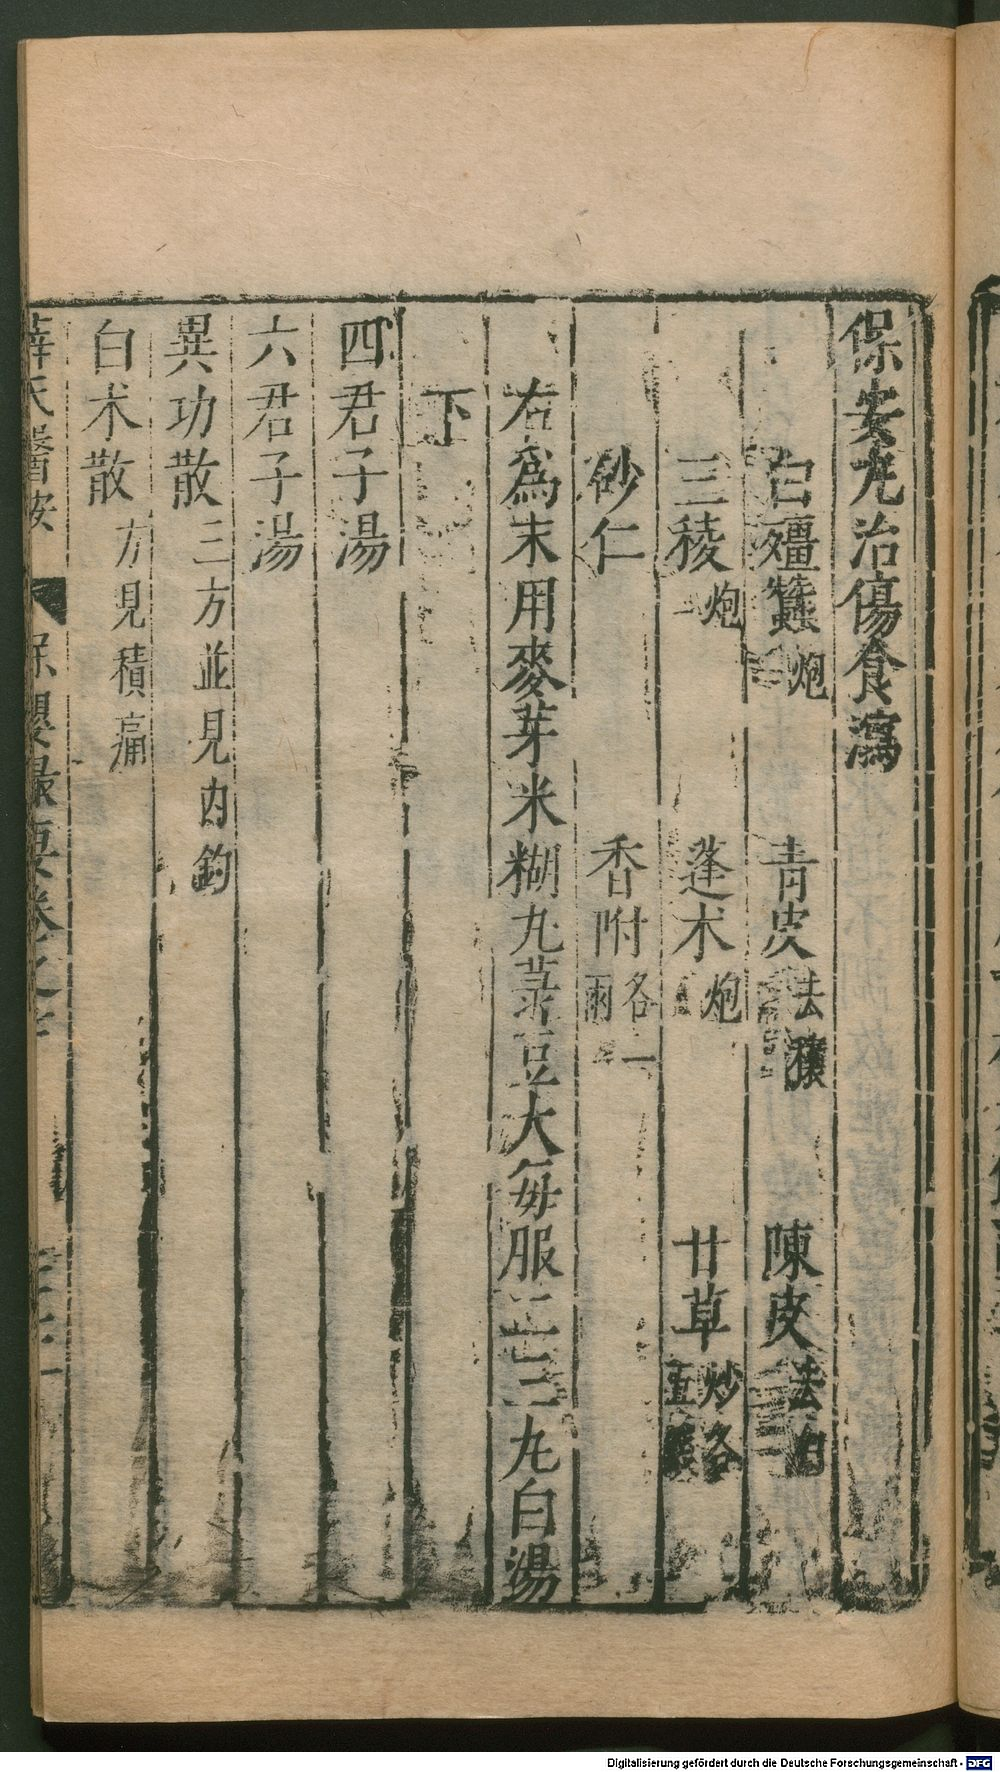 保安丸治傷食瀉
白殭蠶炮 青皮去穰 陳皮去白
三稜炮 蓬朮炮 甘草炒各五錢
砂仁 香附各一兩
右爲末用麥芽米糊丸菉豆大每服二三丸白湯
下
四君子湯
六君子湯
異功散三方並見內釣
白朮散方見積痛
薛氏醫按 保嬰撮要卷之七
Digitalisierung gefördert durch die Deutsche Forschungsgemeinschaft - DFG